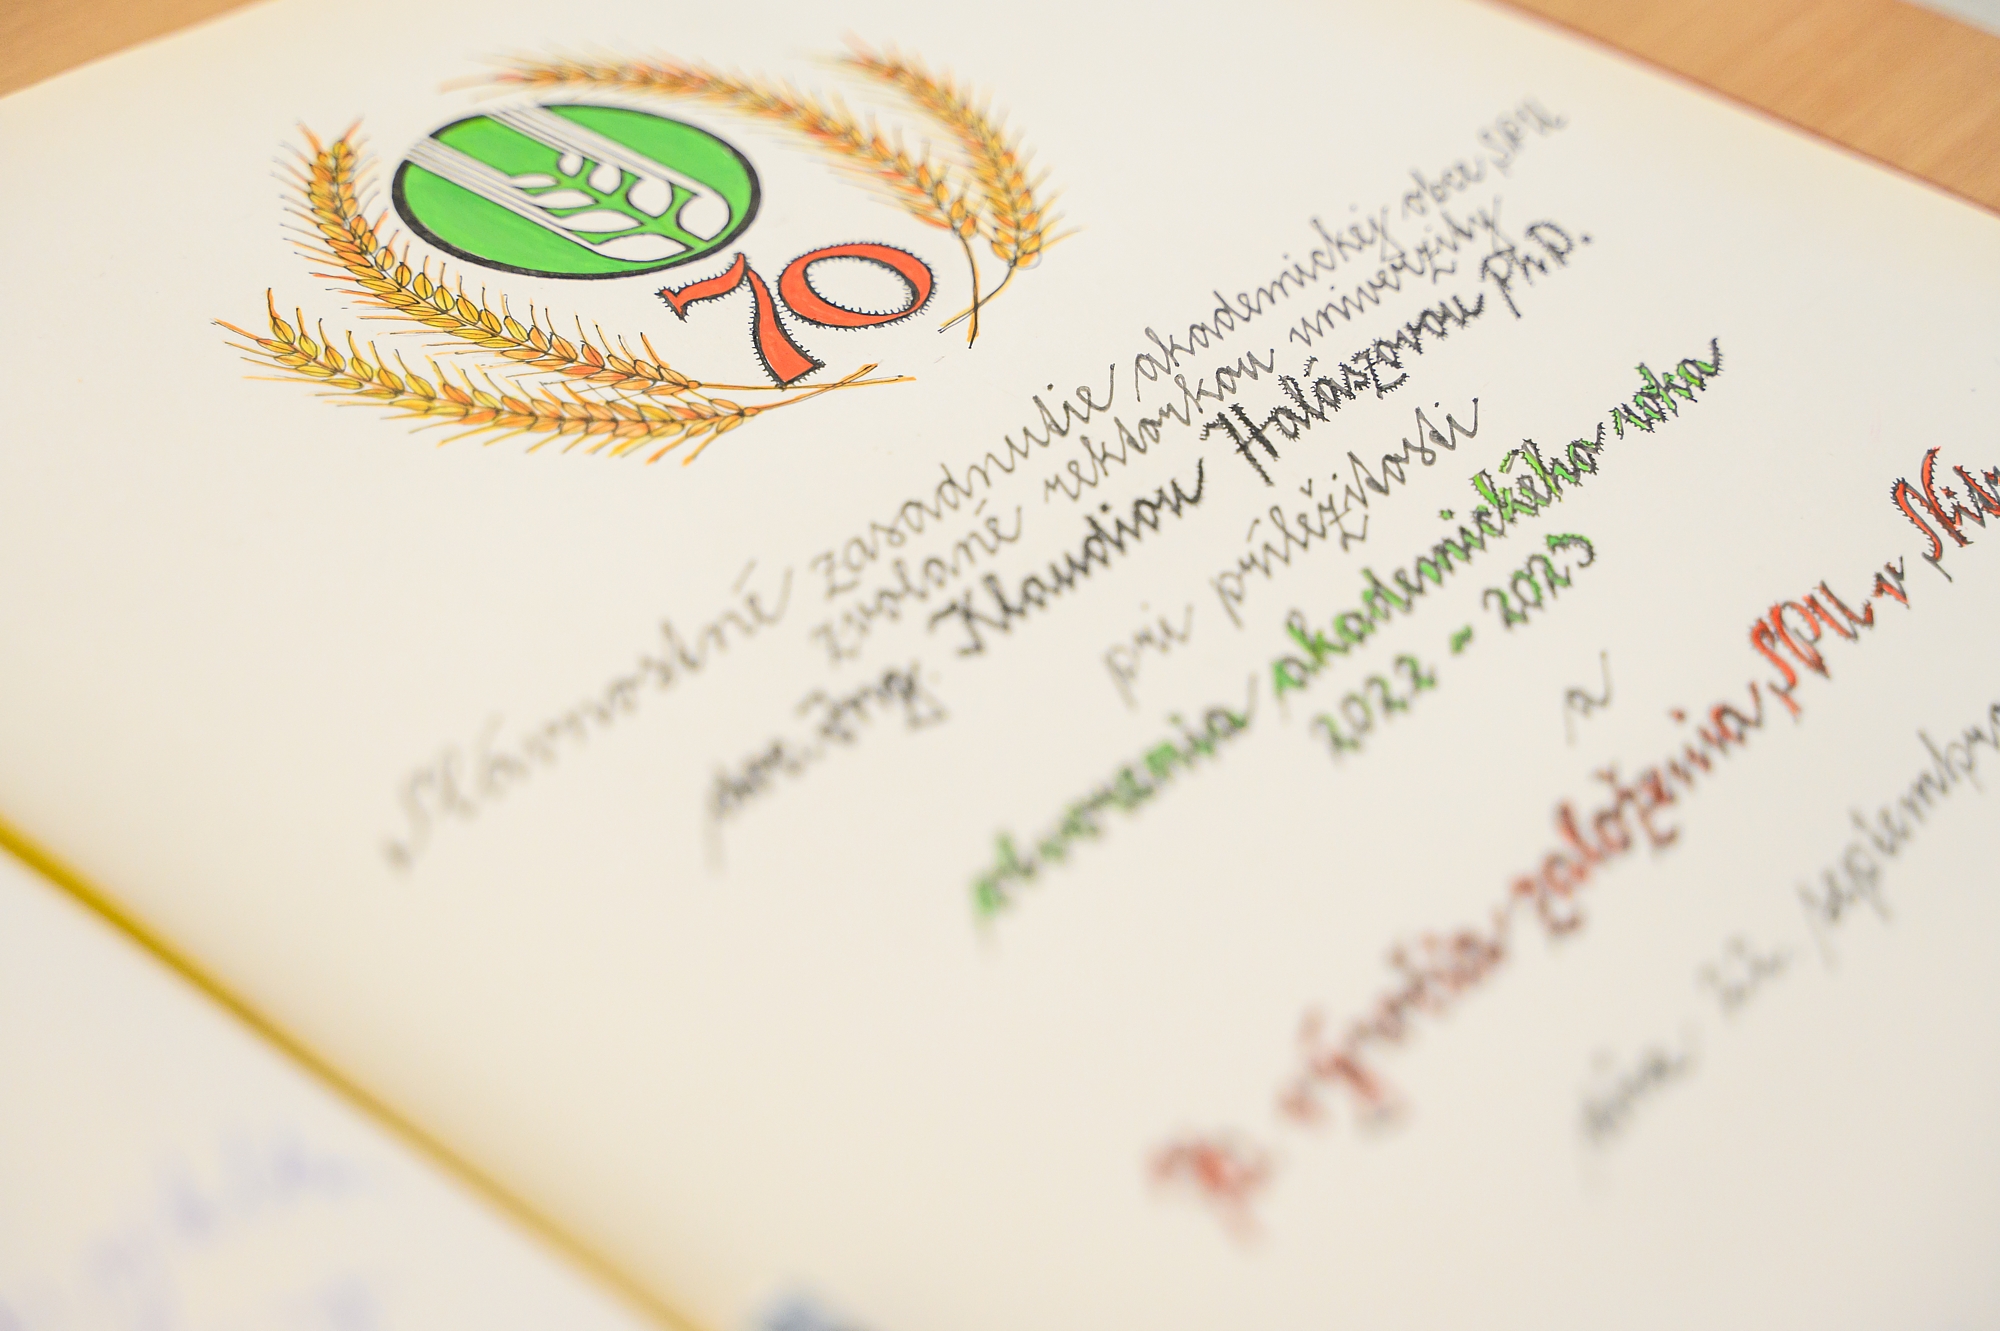 70
Slávnostné zasadnutie akademickej obce SPU
zvolané rektorkou univerzity
doc. Ing. Klaudiou Halászovou PhD.
pri príležitosti
otvorenia akademického roka
2022 - 2023
a
70. výročia založenia SPU v
dňa septembra